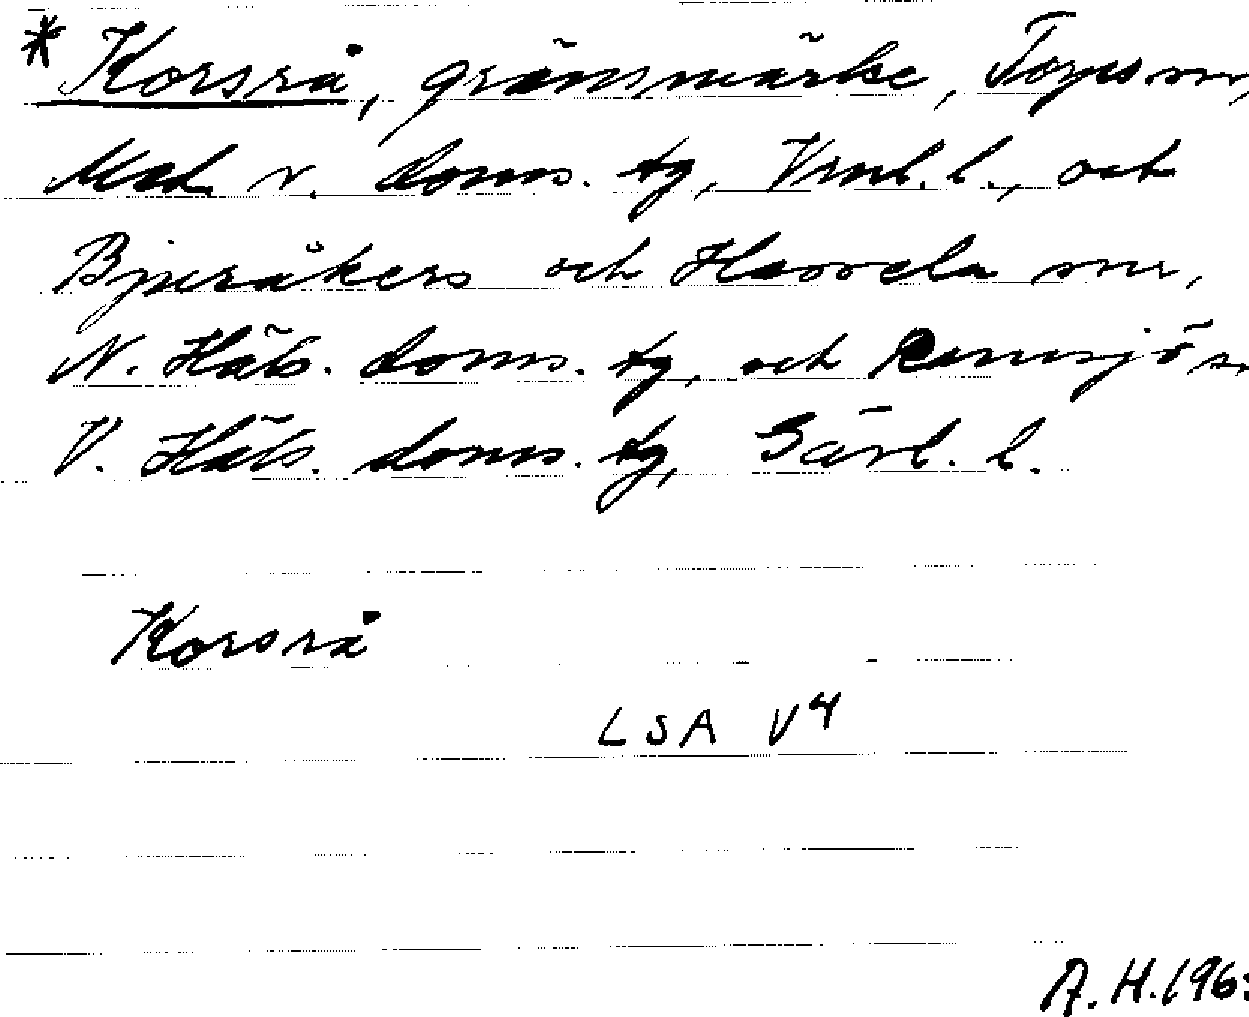 * Korsrå, gränsmärke, Torps sn,
Med. v. doms. tg, Vrnl. l., och
Bjuråkers och Hassela snr,
N. Häls. doms. tg, och Ramsjö sn
V. Häls. doms. tg, Gävl. l.
Korsrå
LSA V4
A. H. 196